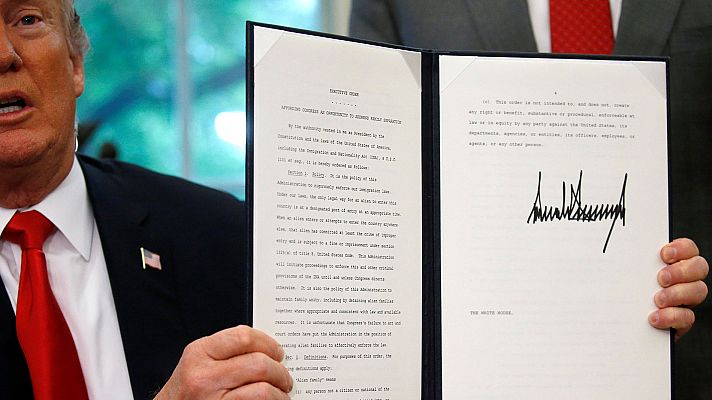 EXECUTIVE ORDER
- - - - - - -
AFFORDING CONGRESS AN OPPORTUNITY TO ADDRESS FAMILY SEPARATION
By the authority vested in me as President by the
Constitution and the laws of the United States of America,
including the Immigration and Nationality Act (INA), 8 U.S.C.
1101 et seq., it is hereby ordered as follows:
Section 1. Policy. It is the policy of this
Administration to rigorously enforce our immigration laws.
Under our laws, the only legal way for an alien to enter this
country is at a designated port of entry at an appropriate time.
When an alien enters or attempts to enter the country anywhere
else, that alien has committed at least the crime of improper
entry and is subject to a fine or imprisonment under section
1325(a) of title 8, United States Code. This Administration
will initiate proceedings to enforce this and other criminal
provisions of the INA until and unless Congress directs
otherwise. It is also the policy of this Administration to
maintain family unity, including by detaining alien families
together where appropriate and consistent with law and available
resources. It is unfortunate that Congress's failure to act and
court orders have put the Administration in the position of
separating alien families to effectively enforce the law.
Sec. 2. Definitions. For purposes of this order, the
following definitions apply:
"Alien family" means
(i) any person not a citizen or national of the
4
(c) This order is not intended to, and does not, create
any right or benefit, substantive or procedural, enforceable at
law or in equity by any party against the United States, its
departments, agencies, or entities, its officers, employees, or
agents, or any other person.
THE WHITE HOUSE,